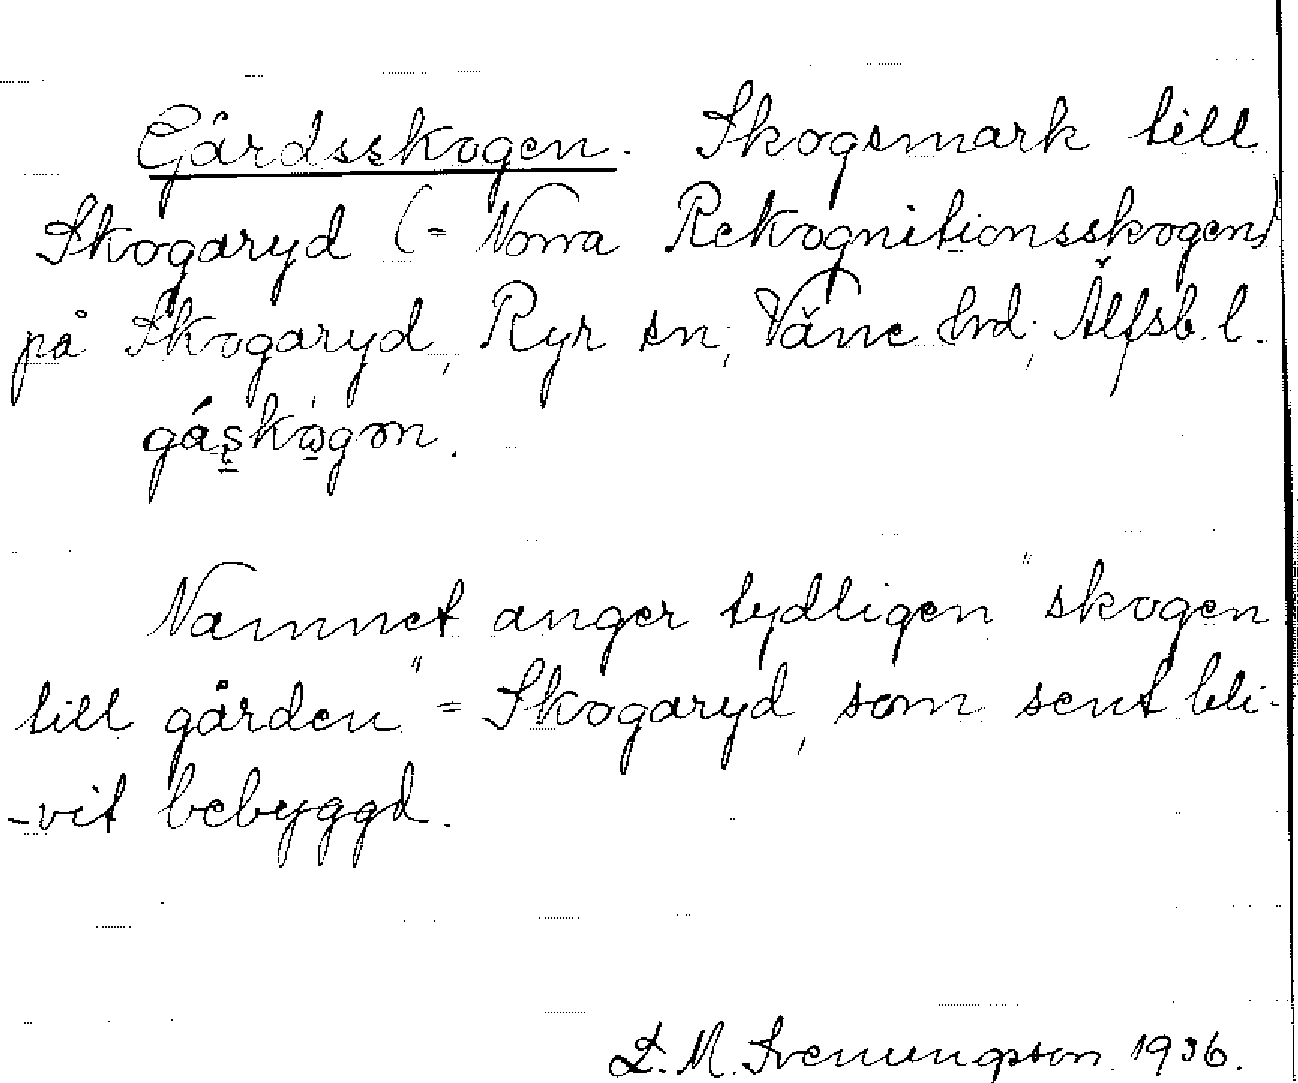 Gårdsskogen. Skogsmark till
Skogaryd (= Norra Rekognitionsskogen)
på Skogaryd, Ryr sn, Väne hrd, Älfsb. l.
gáskògon.
Namnet anger tydligen "skogen
till gården" = Skogaryd, som sent bli-
-vit bebyggd.
D. M. Svenungsson 1936.